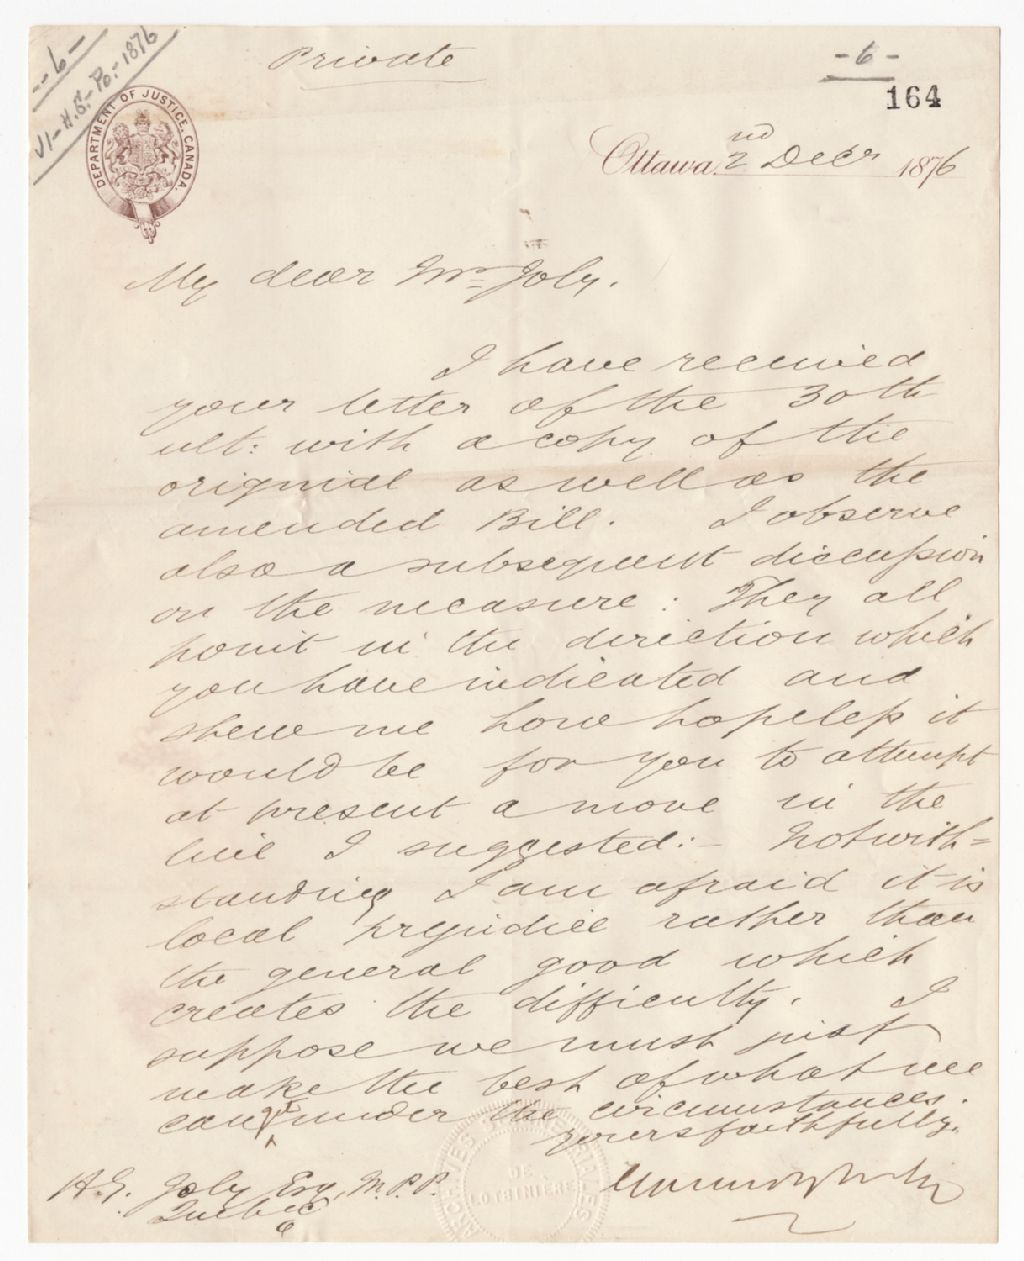 - 6 -
VI - H.G. - Po. - 1876
Private
- 6 -
164
DEPARTMENT OF JUSTICE, CANADA.
Ottawa, 2nd Decr 1876
My dear Mr Joly.
I have received
your letter of the 30th
ult: with a copy of the
original as well as the
amended Bill. I observe
also a subsequent discussion
on the measure: They all
point in the direction which
you have indicated and
shew me how hopeless it
would be for you to attempt
at present a move in the
line I suggested: - Notwith=
standing I am afraid it is
local prejudice rather than
the general good which
creates the difficulty. I
suppose we must just
make the best of what we
can get under the circumstances.
yours faithfully.
H.G. Joly Esq, M.P.P.
Quebec
DE
LOTBINIÈRE